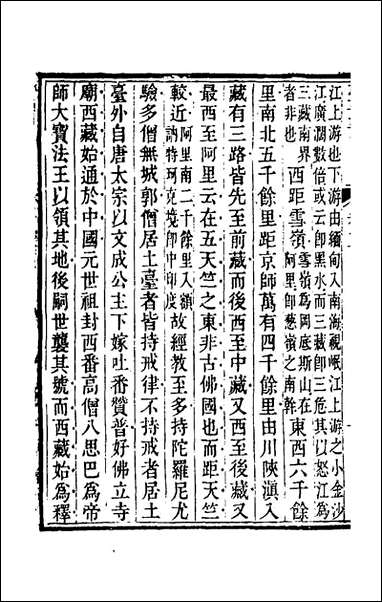 江上游也下游由緬甸入南海視岷江上游之小金沙
江廣濶數倍或云即黑水而三藏即三危其以怒江為
三藏南界者非也西距雪嶺雪嶺為岡底斯山在阿里即葱嶺之南幹東西六千餘
里南北五千餘里距京師萬有四千餘里由川陝滇入
藏有三路皆先至前藏而後西至中藏又西至後藏又
最西至阿里云在五天竺之東非古佛國也而距天竺
較近阿里南二千餘里入額訥特珂克境即中印度故經教至多持陀羅尼尤
驗多僧無城郭僧居土臺者皆持戒律不持戒者居土
臺外自唐太宗以文成公主下嫁吐番贊普好佛立寺
廟西藏始通於中國元世祖封西番高僧八思巴為帝
師大寶法王以領其地後嗣世襲其號而西藏始為釋